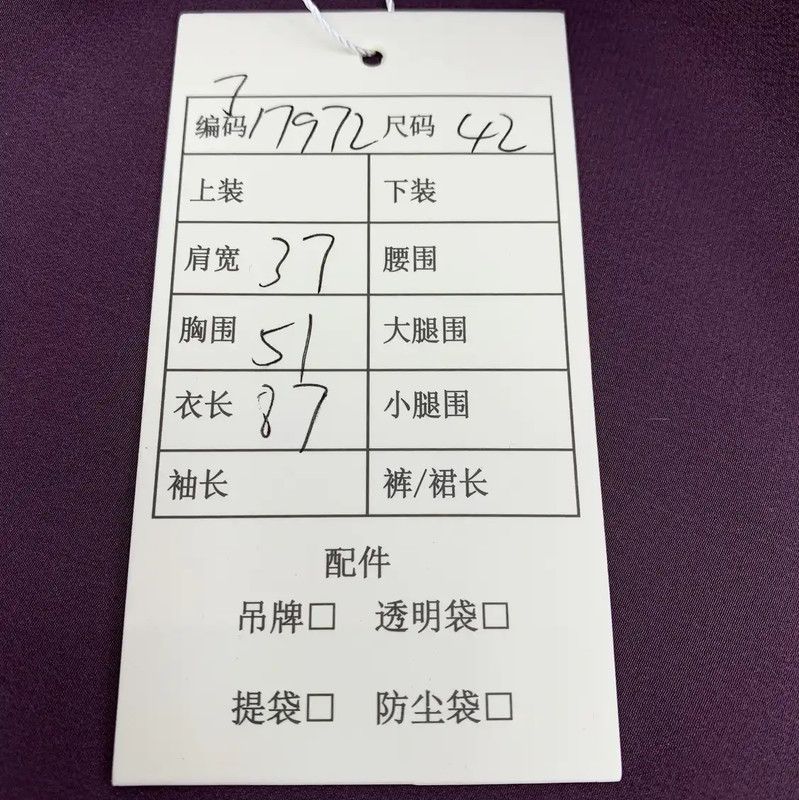 编码 17972 尺码 42
上装 下装
肩宽 37 腰围
胸围 51 大腿围
衣长 87 小腿围
袖长 裤/裙长
配件
吊牌□ 透明袋□
提袋□ 防尘袋□